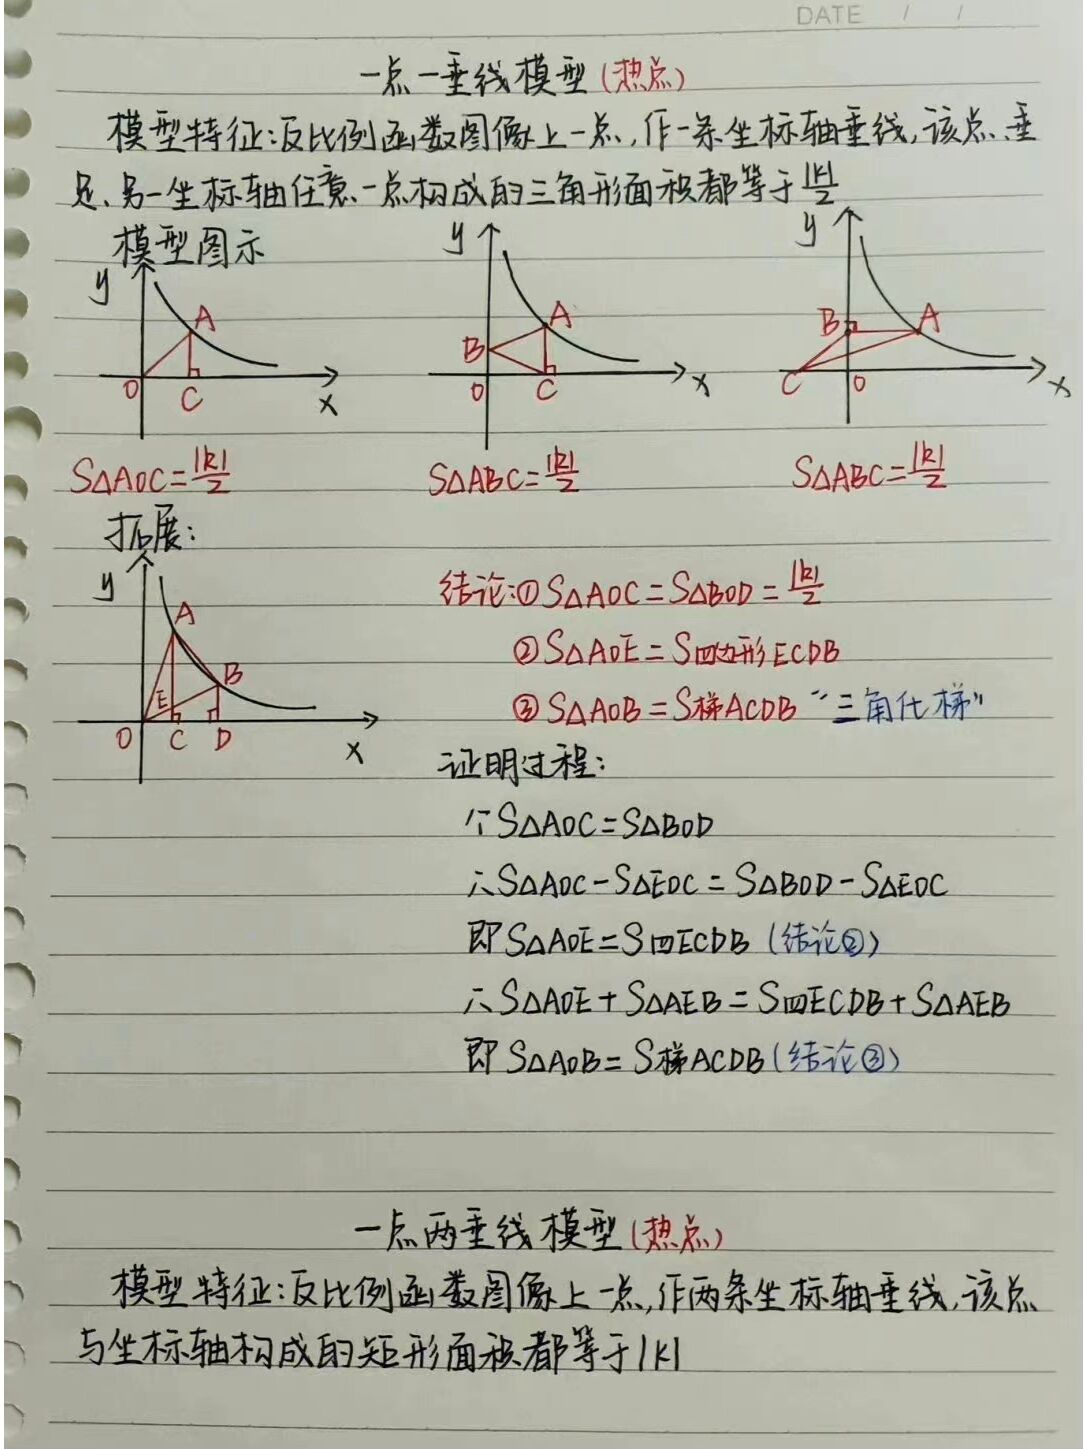 DATE / /
一点一垂线模型(热点)
模型特征:反比例函数图像上一点,作一条坐标轴垂线,该点、垂
足、另一坐标轴任意一点构成的三角形面积都等于|k|/2
模型图示
y A O C x
y A B O C x
y B A C O x
S△AOC=|k|/2 S△ABC=|k|/2 S△ABC=|k|/2
拓展:
y A B E O C D x
结论:①S△AOC=S△BOD=|k|/2
②S△AOE=S四边形ECDB
③S△AOB=S梯ACDB "三角化梯"
证明过程:
∵S△AOC=S△BOD
∴S△AOC-S△EOC=S△BOD-S△EOC
即S△AOE=S四ECDB(结论②)
∴S△AOE+S△AEB=S四ECDB+S△AEB
即S△AOB=S梯ACDB(结论③)
一点两垂线模型(热点)
模型特征:反比例函数图像上一点,作两条坐标轴垂线,该点
与坐标轴构成的矩形面积都等于|k|